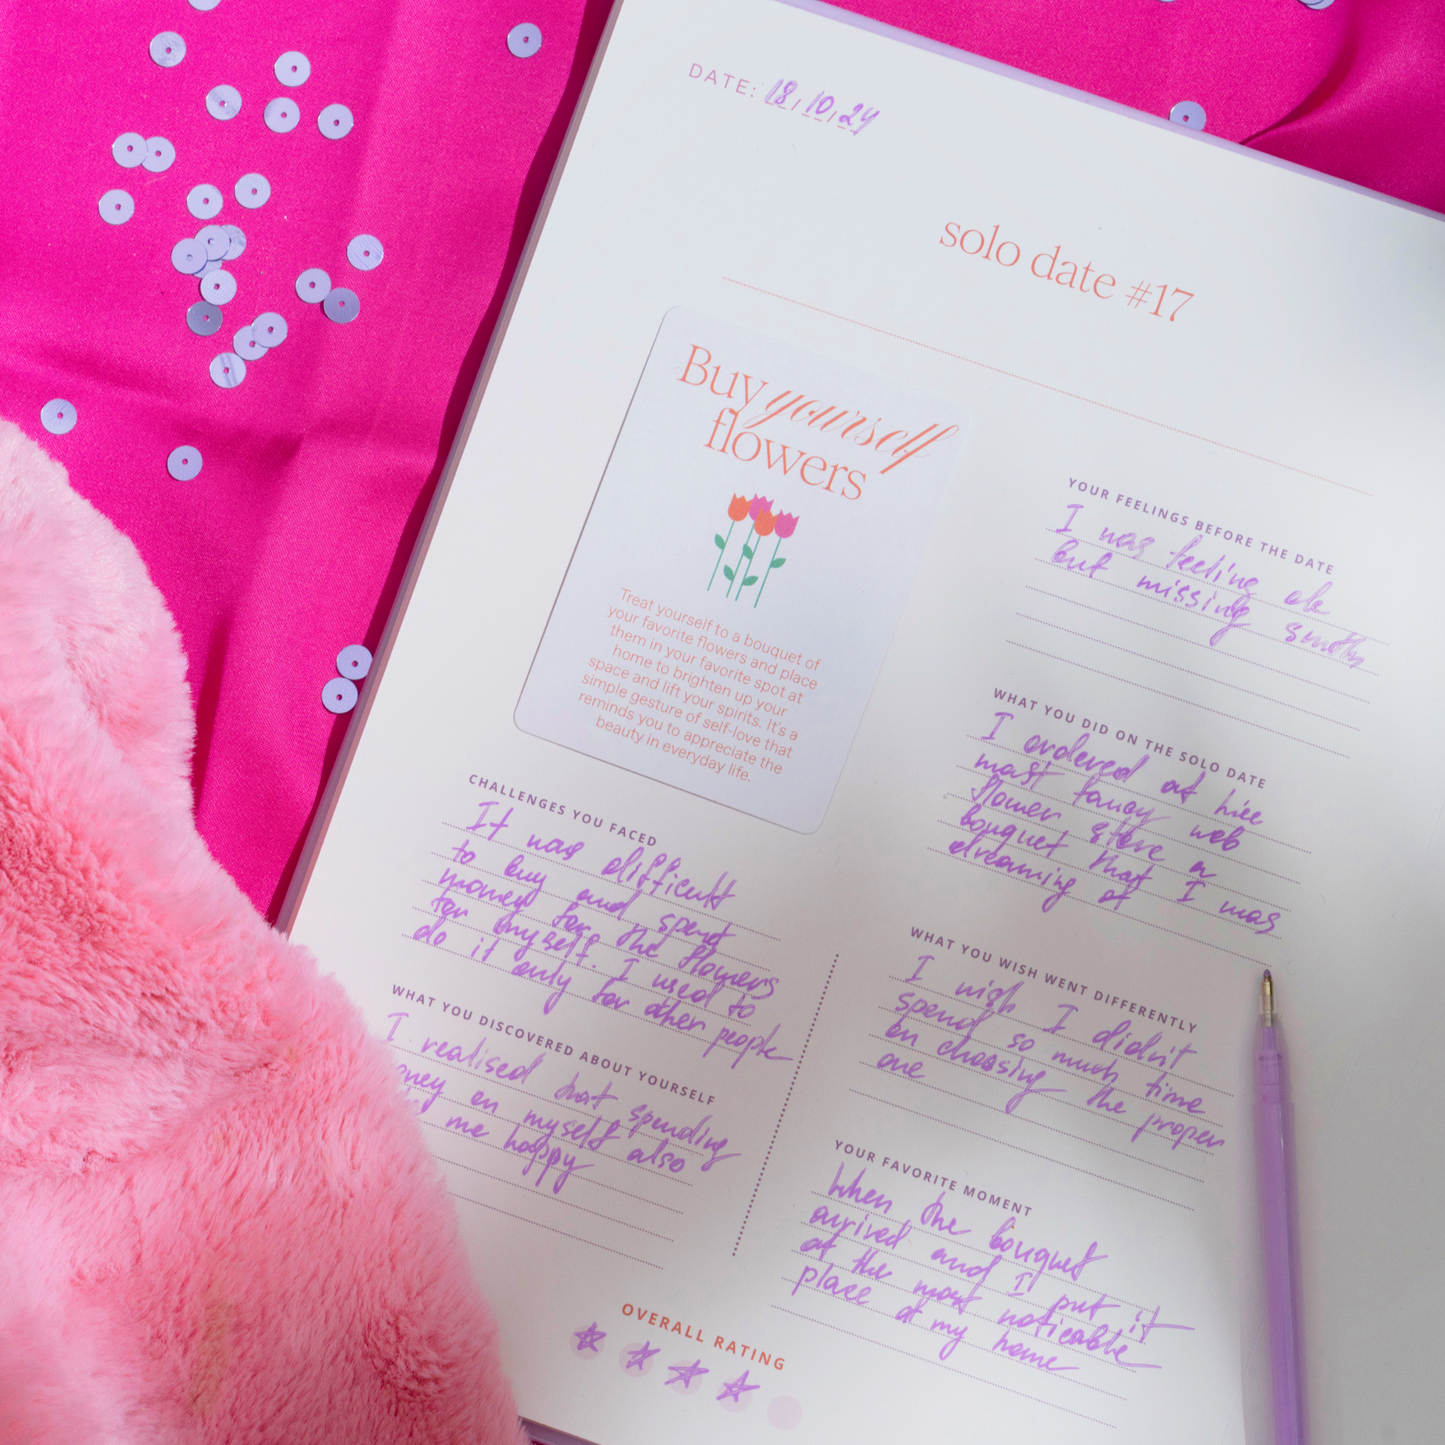 DATE: 18/10/24
solo date #17
Buy yourself
flowers
Treat yourself to a bouquet of
your favorite flowers and place
them in your favorite spot at
home to brighten up your
space and lift your spirits. It's a
simple gesture of self-love that
reminds you to appreciate the
beauty in everyday life.
CHALLENGES YOU FACED
It was difficult
to buy and spend
money for the flowers
for myself. I used to
do it only for other people
WHAT YOU DISCOVERED ABOUT YOURSELF
I realised that spending
on myself also
me happy
OVERALL RATING
YOUR FEELINGS BEFORE THE DATE
I was feeling ok
but missing
WHAT YOU DID ON THE SOLO DATE
I ordered at
most fancy web
flower store a
bouquet that I was
dreaming of
WHAT YOU WISH WENT DIFFERENTLY
I wish I didn't
spend so much time
on choosing the proper
one
YOUR FAVORITE MOMENT
When the bouquet
arrived and I put it
at the most noticeable
place at my home